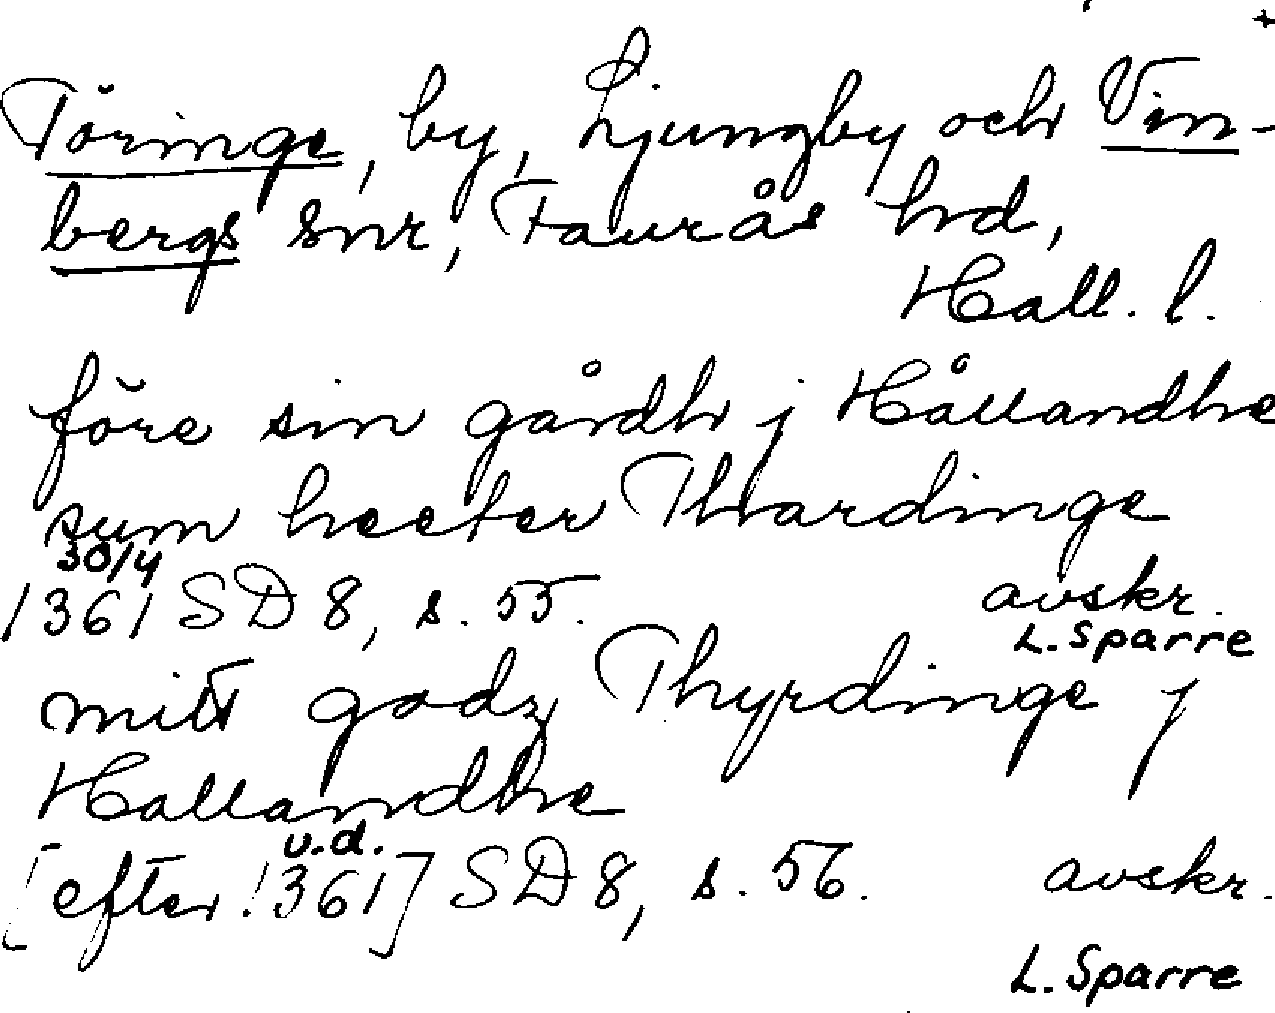 Töringe, by, Ljungby och Vin-
bergs snr, Faurås hd,
Hall. l.
före sin gårdh j Hållandhe
sum heeter Thardinge
30/4
1361 SD 8, s. 55. avskr.
L. Sparre
mitt godz Thyrdinge j
Hallandhe
u.d.
[efter 1361] SD 8, s. 56. avskr.
L. Sparre